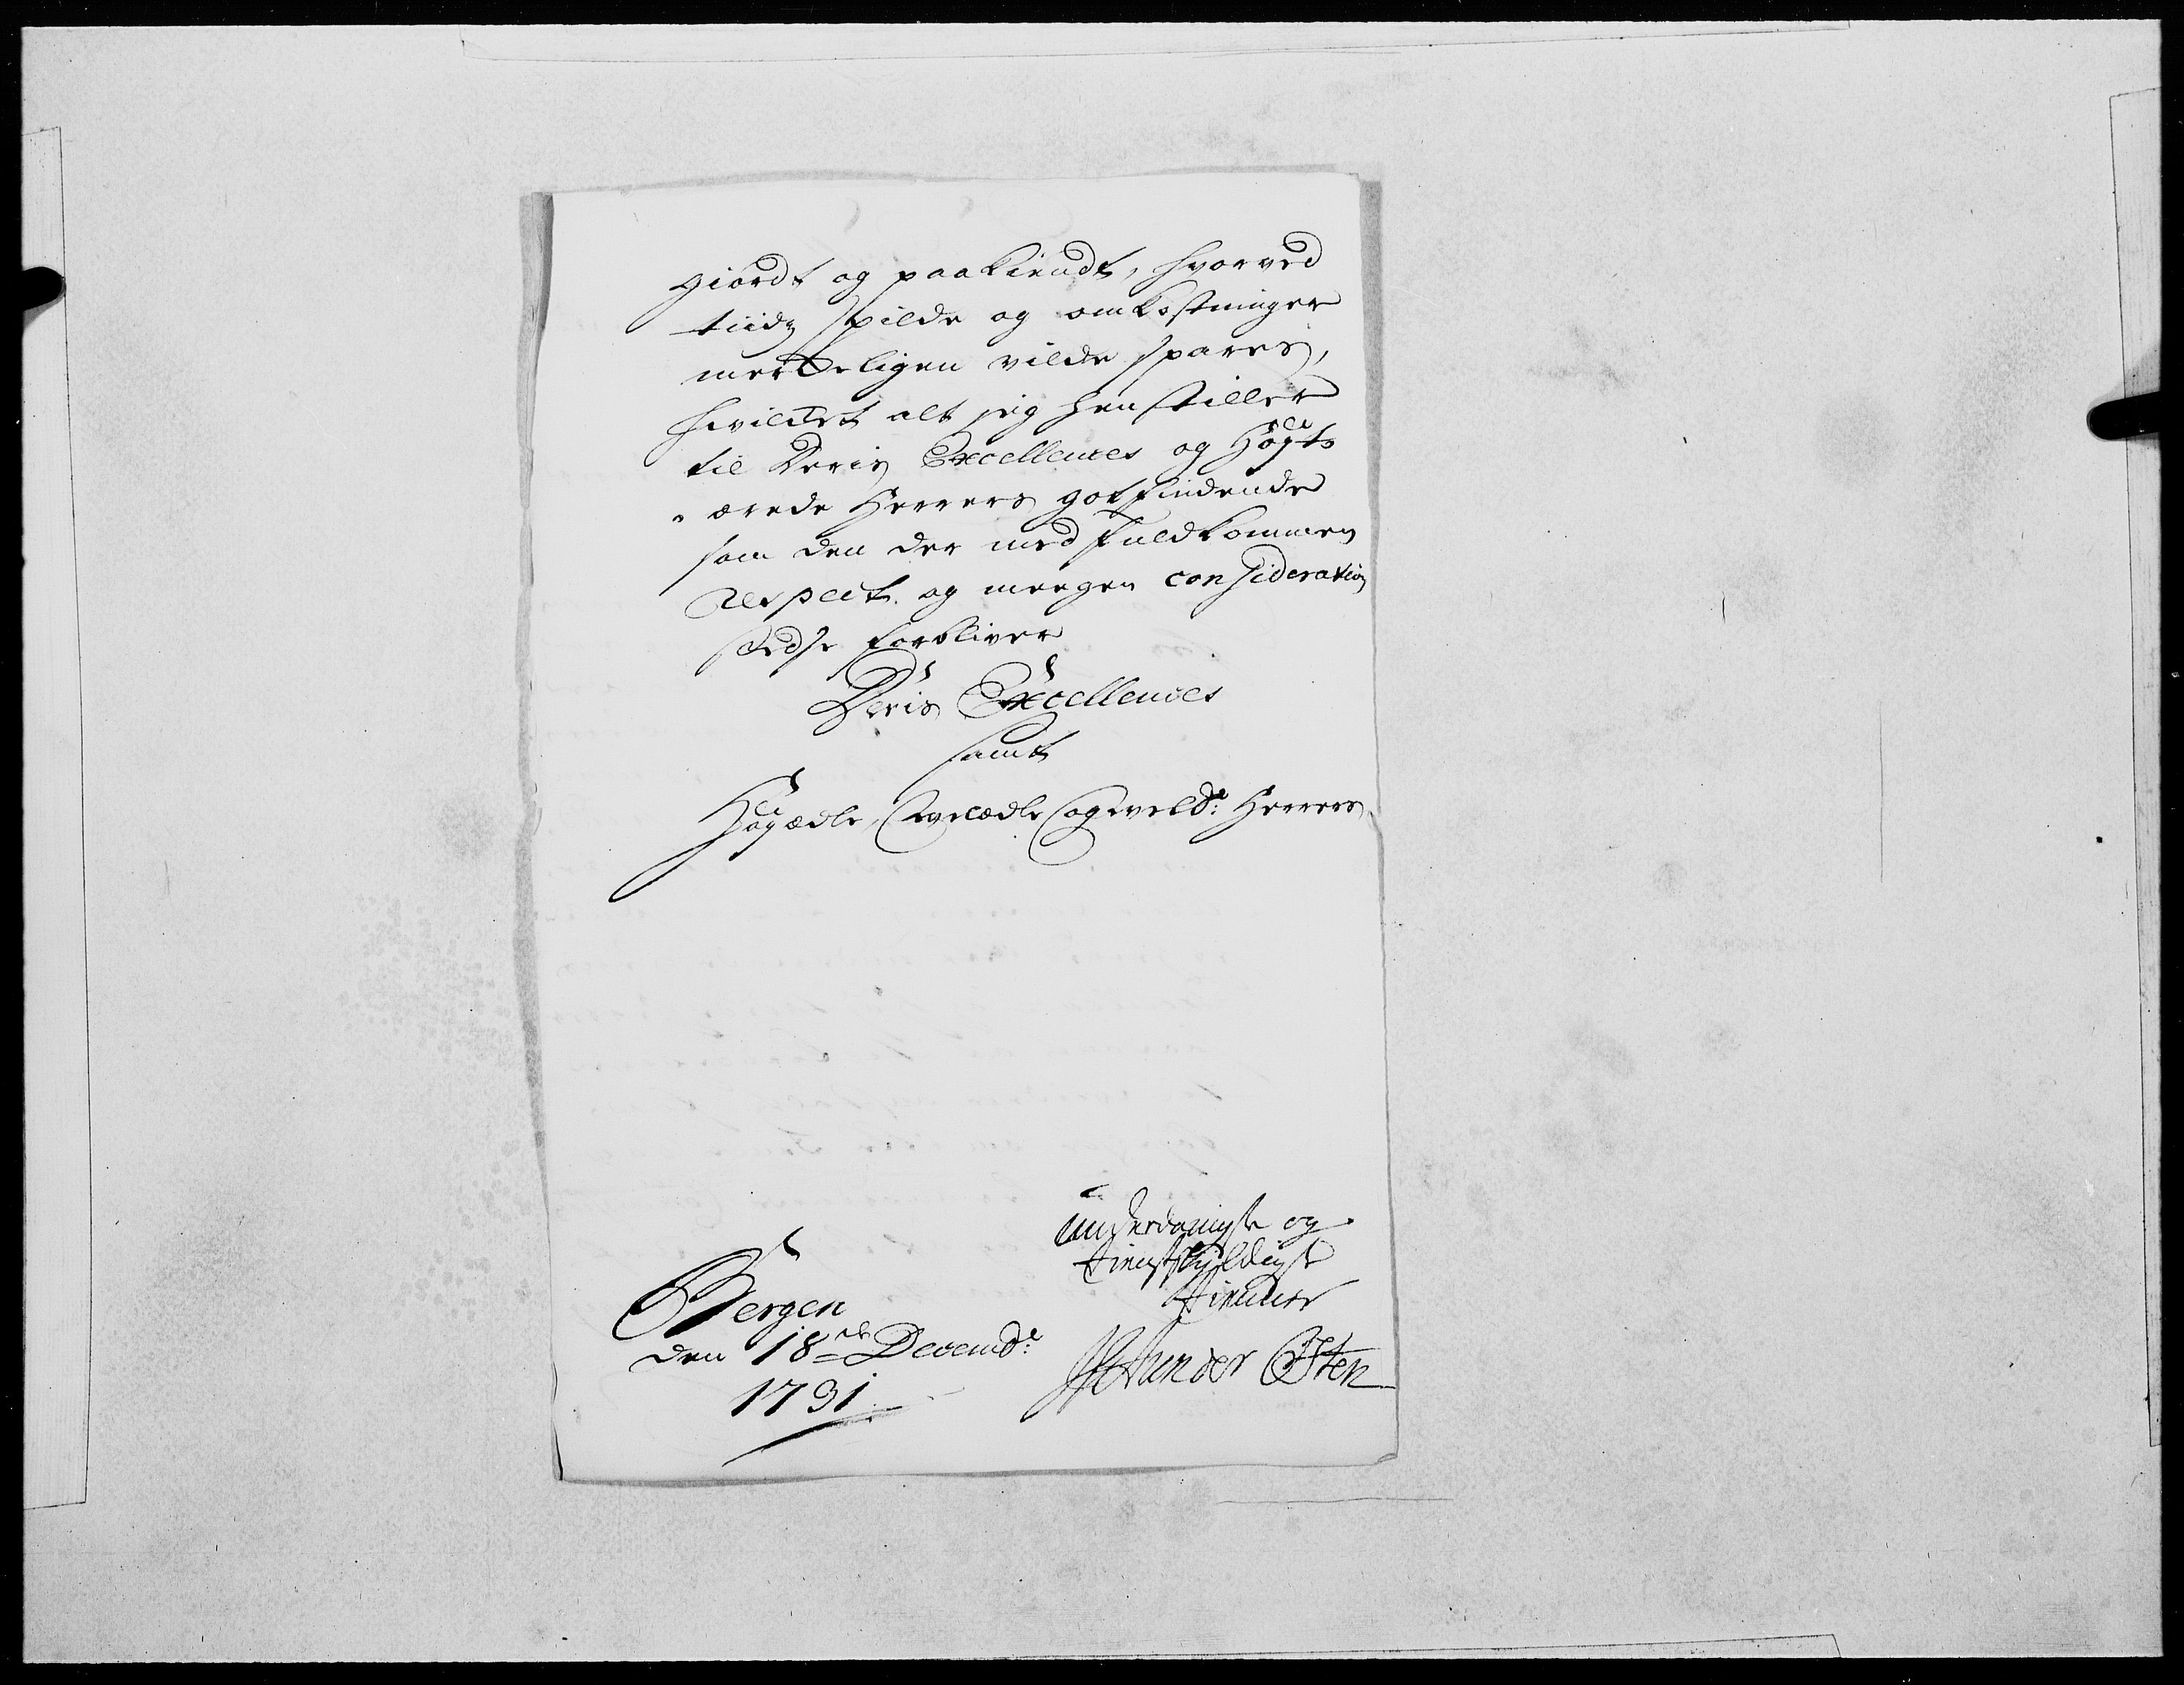 giørdt og paakiendt, hvorved
tiids spilde og omkostninger
merkeligen vilde spares,
hvilket alt jeg henstiller
til Deris Excellences og Høyt-
ærede Herrers gotfindende
som den der med fuldkommen
respect og megen consideration
stedse forbliver
Deris Excellences
samt
Høyædle, Velædle og velb: Herrers
underdanigste og
tienstskyldigste
tiener
Bergen
den 18de Decembr:
1731
von der Osten